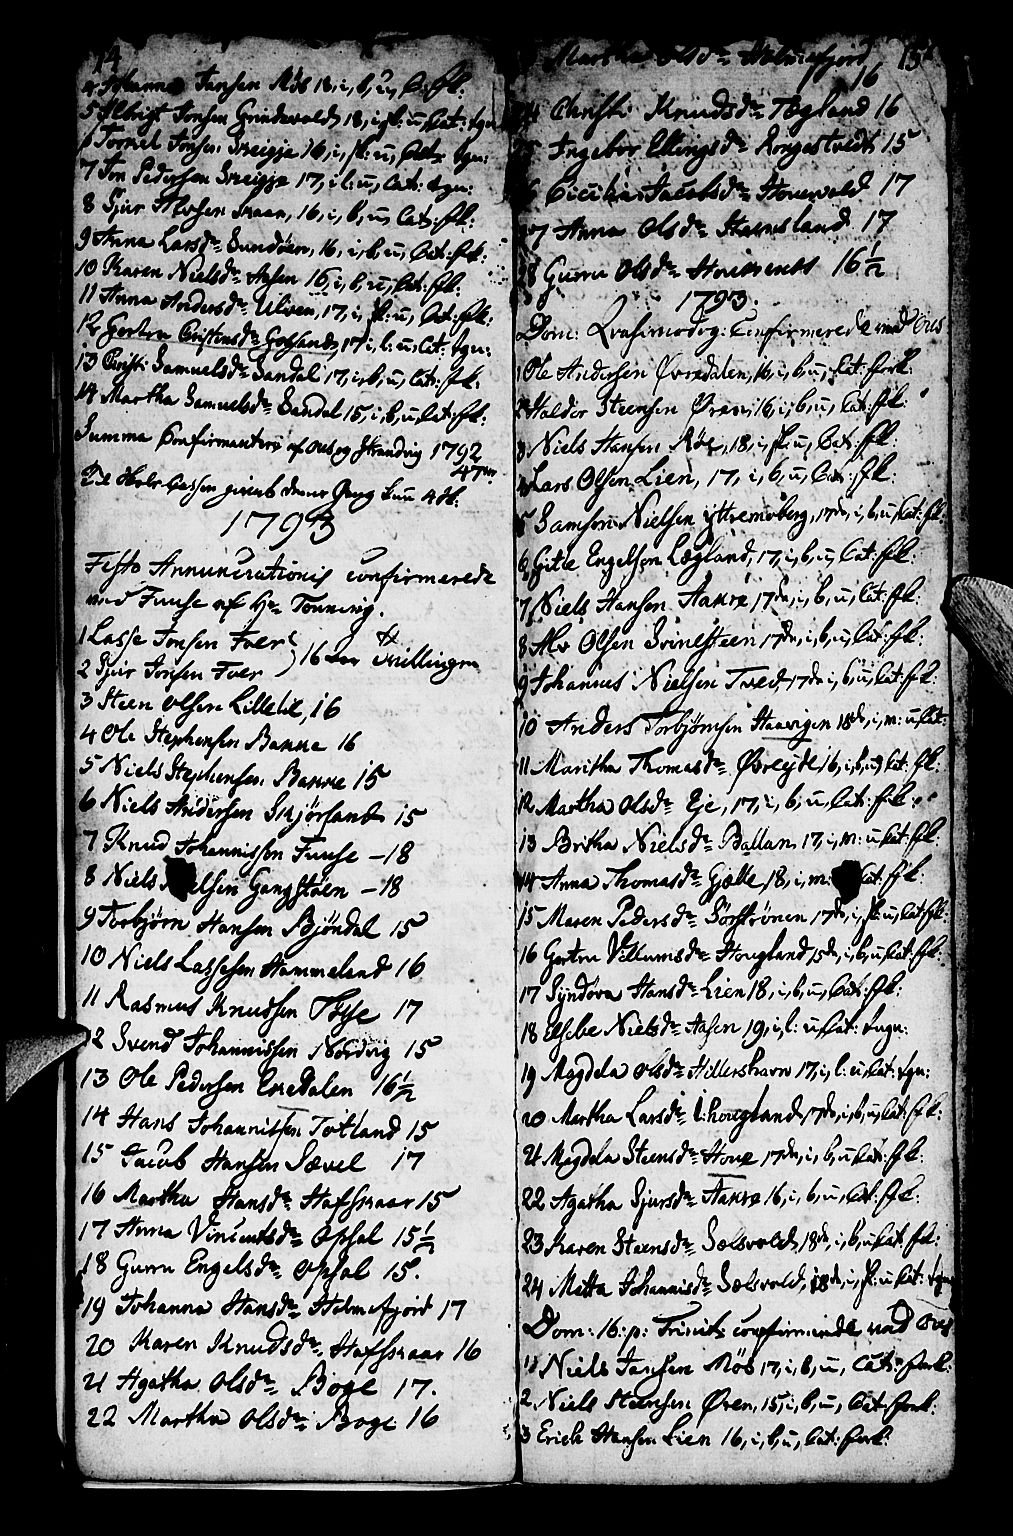 14
4 Johanna Jansen Röb 18, i, b, u, C. fk.
5 Albrigt Jonsen Grindevold, 18, i, fk: u, Cat: tgn:
6 Tormel Jonsen Sveigje 16, i, fk: u, Cat: tgn:
7 Jon Pedersen Sveigje 17, i, l: u, Cat: tgn:
8 Sjur 16, i, b, u, Cat: fk:
9 Anna Larsdr Sundöen, 16, i, b, u, Cat: fk:
10 Karen Nielsdr Aasen 16, i, b, u, Cat: fk:
11 Anna Andersdr Ulven, 17, i, fk: u, Cat: fk:
12 Gertru Cristensdr 17, i, l: u, Cat: tgn:
13 Christi Samuelsdr Sandal 17, i, b, u, Cat: fk:
14 Martha Samuelsdr Sandal 15, i, b, u Cat: fk:
Summa Confirmanterne af Ous og Strandvig 1792
47
denne Gang Sum
1793
Festo Annunciationis confirmerede
ved Fuuse af Hr Tonning.
1 Lasse Jonsen Fver
2 Sjur Jonsen Fver 16 Aar Tvillinger
3 Steen Olsen Lilleli, 16
4 Ole Stephensen Bakke 16
5 Niels Stephensen Bakke 15
6 Niels Andersen Skjörsand 15
7 Knud Johannissen Fuuse - 18
8 Niels Nielsen Gangstöen - 18
9 Torbjörn Hansen Bjöndal 15
10 Niels Lassesen Hammeland 16
11 Rasmus Knudsen 17
12 Svend Johannissen Nordvig 15
13 Ole Pedersen Eredalen 16½
14 Hans Johannissen Totland 15
15 Jacob Hansen Sævel 17
16 Martha Hansdr Hafskaar 15
17 Anna Vincentsdr Opsal 15½
18 Guru Engelsdr Opsal 15.
19 Johanna Hansdr Holmefjord 17
20 Karen Knudsdr Hafskaar 16
21 Agatha Olsdr Boge 17.
22 Martha Olsdr Boge 16
15
Martha Olsdr Holmefjord
16
24 Christi Knudsdr Tegland 16
25 Ingebor Ellingsdr Rongestvedt 15
26 Jacobsdr 17
27 Anna Olsdr 17
28 Guru Olsdr 16½
1793.
Dom: Qvasimodog: Confirmerede ved Ous
1 Ole Andersen Övredalen, 16, i, b, u, Cat: fork:
2 Haldor Steensen Ören, 16, i, b, u, Cat: fk:
3 Niels Hansen Röe, 18, i, fk: u, Cat: fk:
4 Lars Olsen Lien, 17, i, b, u, Cat: fk:
5 Samson Nielsen yttremoberg, 17de, i, b, u, Cat: fk:
6 Gitle Engelsen Lægland, 17, i, b, u, Cat: fk:
7 Niels Hansen Aakre 17de, i, b, u, Cat: fk:
8 Olsen Svinesteen 17de, i, b, u, Cat: fk:
9 Johannes Nielsen Tved, 17de i, b, u, Cat: fk:
10 Anders Torbjörnsen Haavigen 18de, i, m: u Cat:
11 Maritha Thomasdr Övreeide 16, i, b, u, Cat: fk:
12 Martha Olsdr Eje, 17, i, b, u, Cat: fk:
13 Britha Nielsdr Ballan, 17, i, m: u Cat: fk:
14 Anna Thomasdr Gjelle, 18, i, m: Cat: fk:
15 Maren Pedersdr Sörströnen 17de, i, fk: u, Cat fk:
16 Gertru Villumsdr Hougland 15de, i, b, u, Cat: fk:
17 Syndöva Hansdr Lien 18, i, b, u, Cat: fk:
18 Elsebe Nielsdr Aasen 19, i, l: u Cat: tngn:
19 Magdela Olsdr Hillershavn 17, i, l: u, Cat: tgn:
20 Martha Larsdr L: hougland 17de, i, b, u, Cat: fk:
21 Magdela Steensdr Hove 17de, i, b, u Cat: fk:
22 Agatha Sjursdr Aakre 16, i, b, u, Cat: fk:
23 Karen Steensdr Sælsvold, 18de, i, b, u, Cat: fk:
24 Metta Johannisdr Sælsvold, 18de, i, fk: u Cat: tgn
Dom: 16: p: Trinit: confirmerede ved Ous
1 Niels Jansen Röb 17, i, b, u, Cat: fork:
2 Niels Steensen Ören, 15, i, b, u, Cat: fork:
3 Erich Hansen Lien 16, i, b, u, Cat: fork: